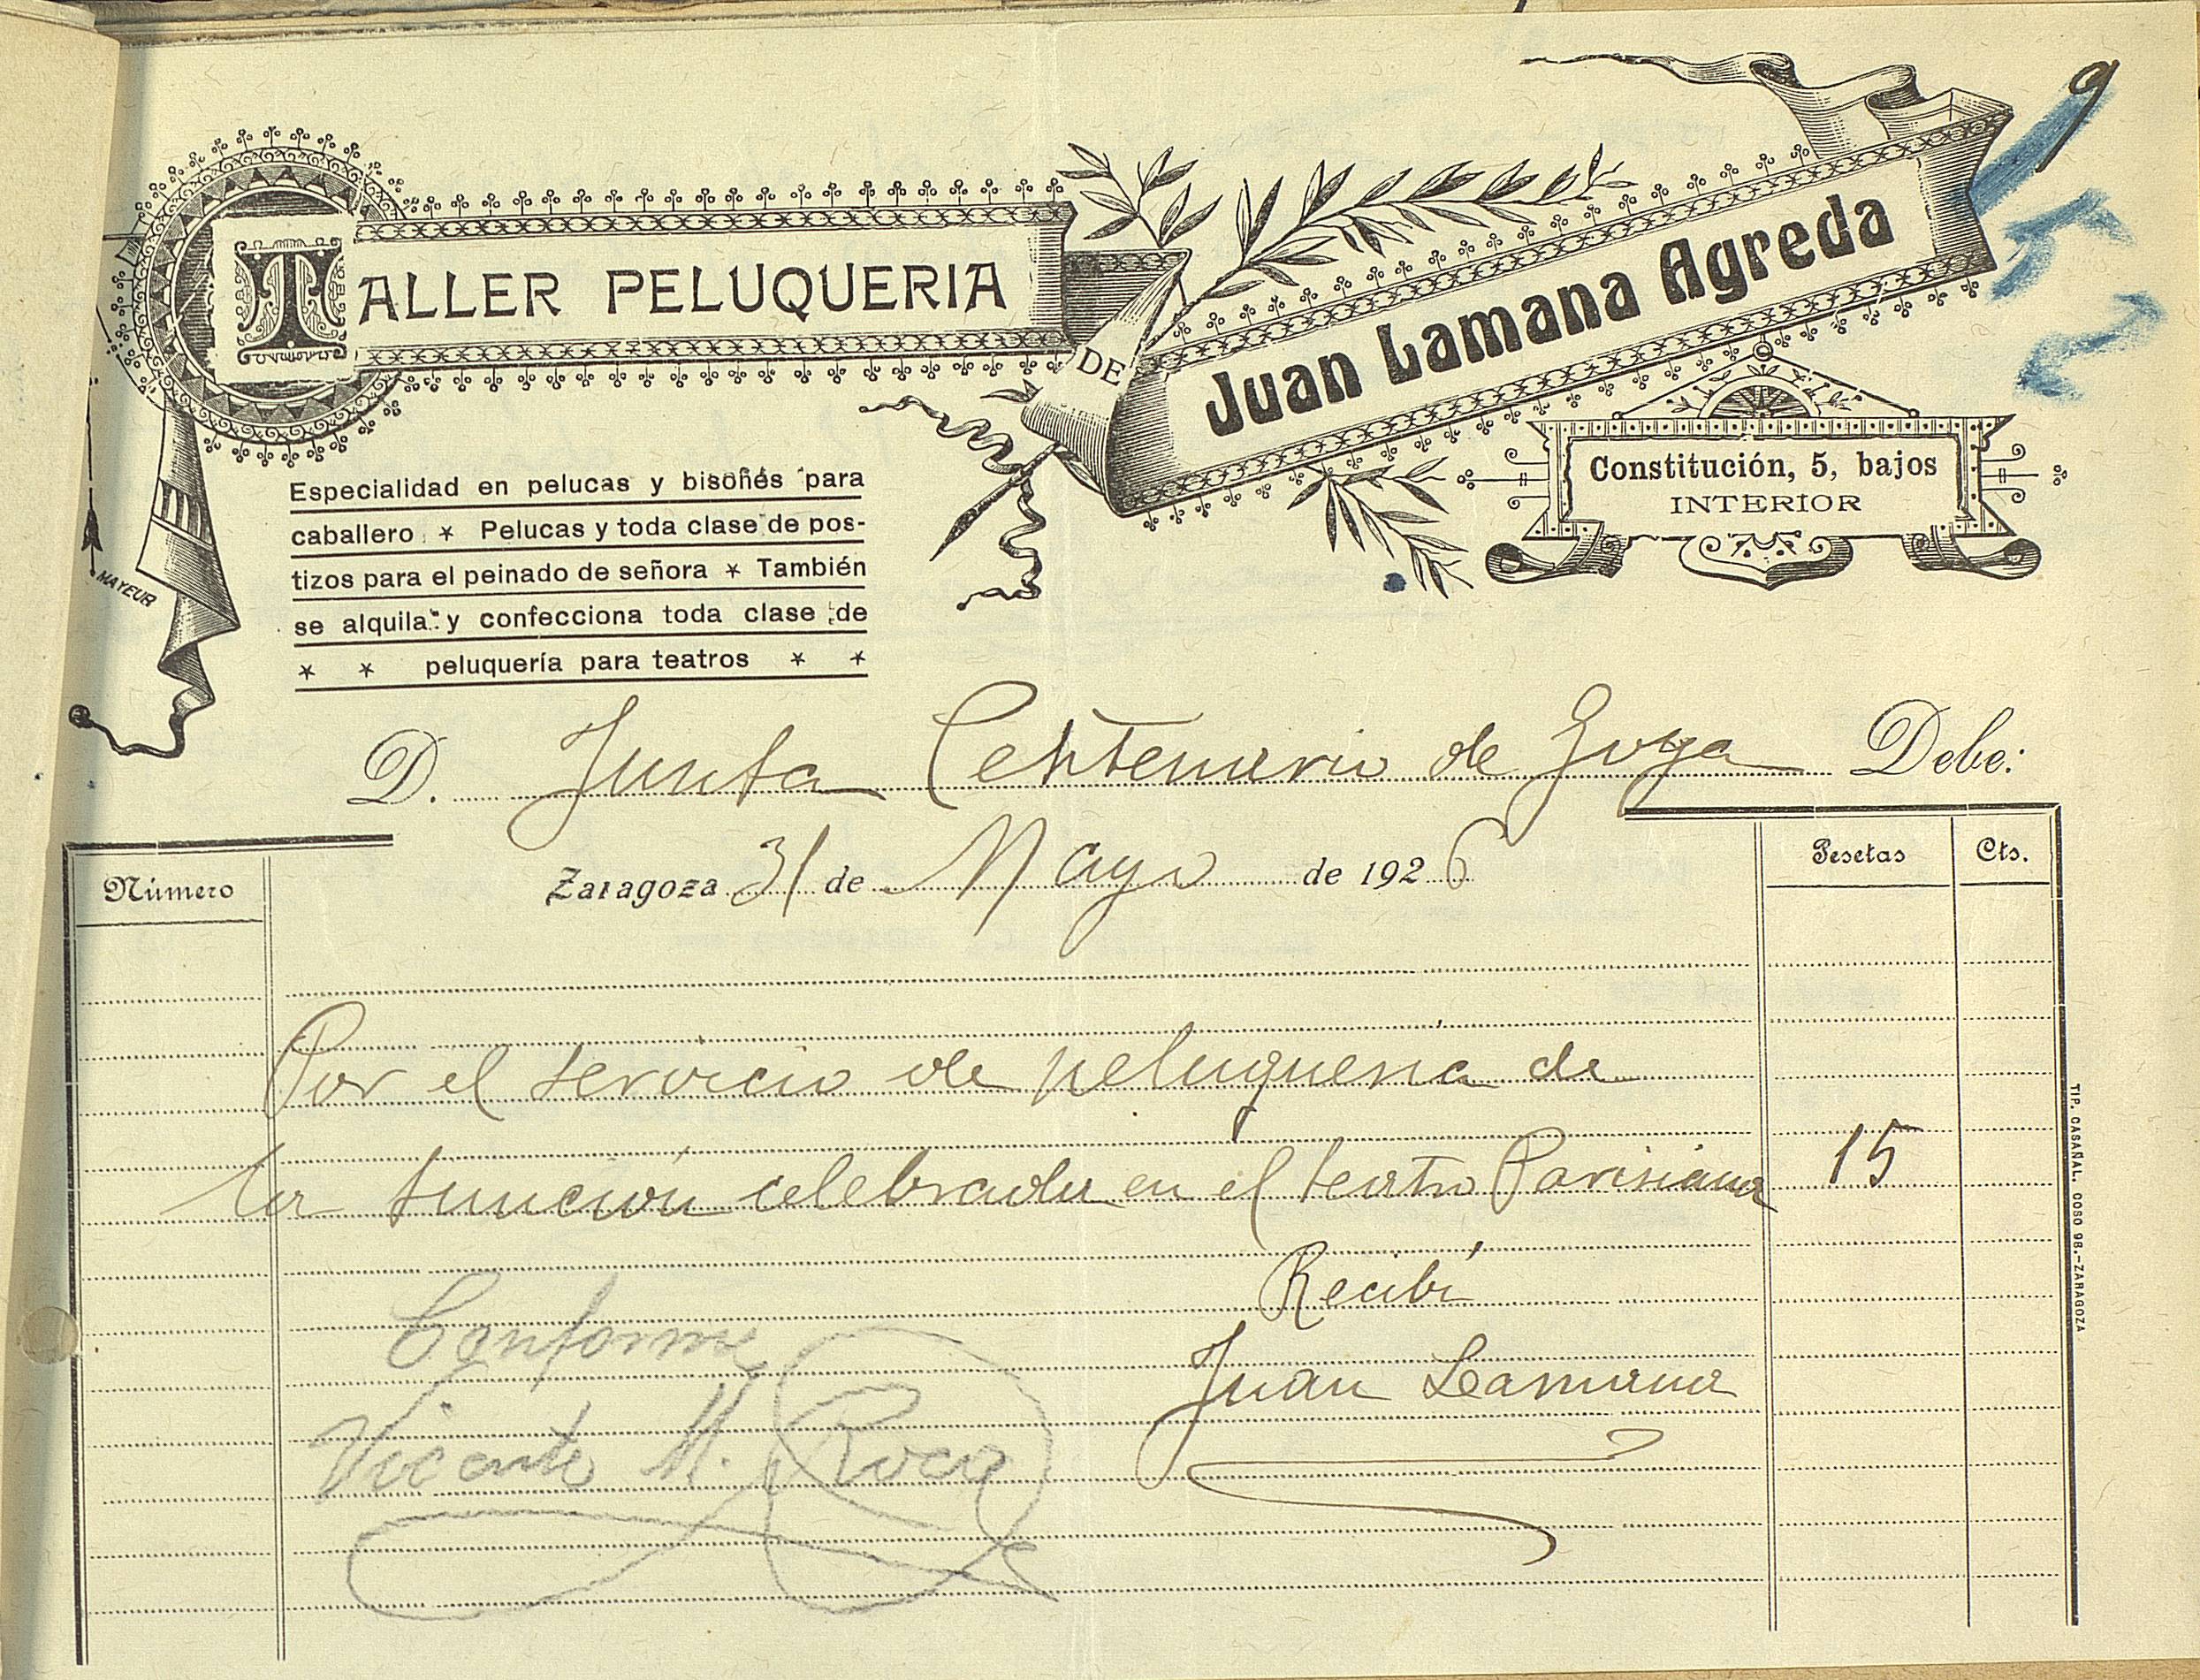 9
152
TALLER PELUQUERIA
DE
Juan Lamana Agreda
Constitución, 5, bajos
INTERIOR
Especialidad en pelucas y bisoñés para
caballero * Pelucas y toda clase de pos-
tizos para el peinado de señora * También
se alquila y confecciona toda clase de
* * peluquería para teatros * *
MAYEUR
D. Junta Centenario de Goya Debe:
Zaragoza 31 de Mayo de 1926
Número
Pesetas Cts.
Por el servicio de peluqueria de
la función celebrada en el teatro Parisiana 15
Recibí
Juan Lamana
Conforme
Vicente M. Roca
TIP. CASAÑAL, COSO 98.-ZARAGOZA